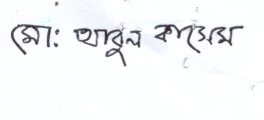 মোঃ আবুল কাসেম